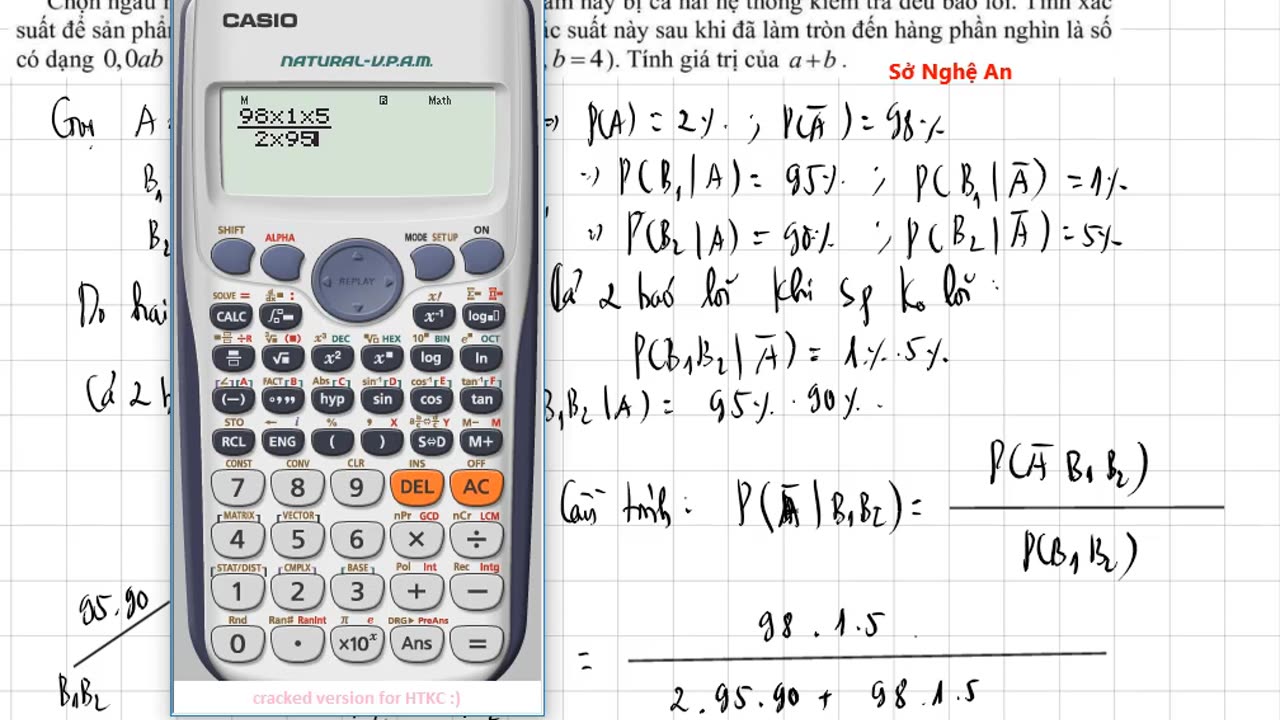 Chọn ngẫu n
ẩm này bị cả hai hệ thống kiểm tra đều báo lỗi. Tính xác
suất để sản phẩm
ác suất này sau khi đã làm tròn đến hàng phần nghìn là số
có dạng 0,0ab
, b = 4). Tính giá trị của a+b .
Sở Nghệ An
Gọi A =
=> P(A) = 2% ; P(A̅) = 98%
B₁
=> P(B₁ | A) = 95% ; P(B₁ | A̅) = 1%
B₂
=> P(B₂ | A) = 90% ; P(B₂ | A̅) = 5%
Do hai
Cả 2 báo lỗi khi sp ko lỗi :
P(B₁B₂ | A̅) = 1% . 5%
Cả 2 b
B₁B₂ | A) = 95% . 90% .
Cần tính : P(A̅ | B₁B₂) = P(A̅ B₁ B₂)
P(B₁ B₂)
95.90
B₁B₂
= 98 . 1 . 5
2 . 95 . 90 + 98 . 1 . 5
CASIO
NATURAL-V.P.A.M.
M D Math
98×1×5
2×95
SHIFT ALPHA MODE SETUP ON
REPLAY
SOLVE = : x! Σ= Π=
CALC ∫ x⁻¹ log
÷R ³√ x³ DEC ˣ√ HEX 10ˣ BIN eˣ OCT
√ x² xⁿ log ln
∠ A FACT B Abs C sin⁻¹ D cos⁻¹ E tan⁻¹ F
(−) °,,, hyp sin cos tan
STO ← i % , X Y M− M
RCL ENG ( ) S⇔D M+
CONST CONV CLR INS OFF
7 8 9 DEL AC
MATRIX VECTOR nPr GCD nCr LCM
4 5 6 × ÷
STAT/DIST CMPLX BASE Pol Int Rec Intg
1 2 3 + −
Rnd Ran# RanInt π e DRG▶ PreAns
0 · ×10ˣ Ans =
cracked version for HTKC :)